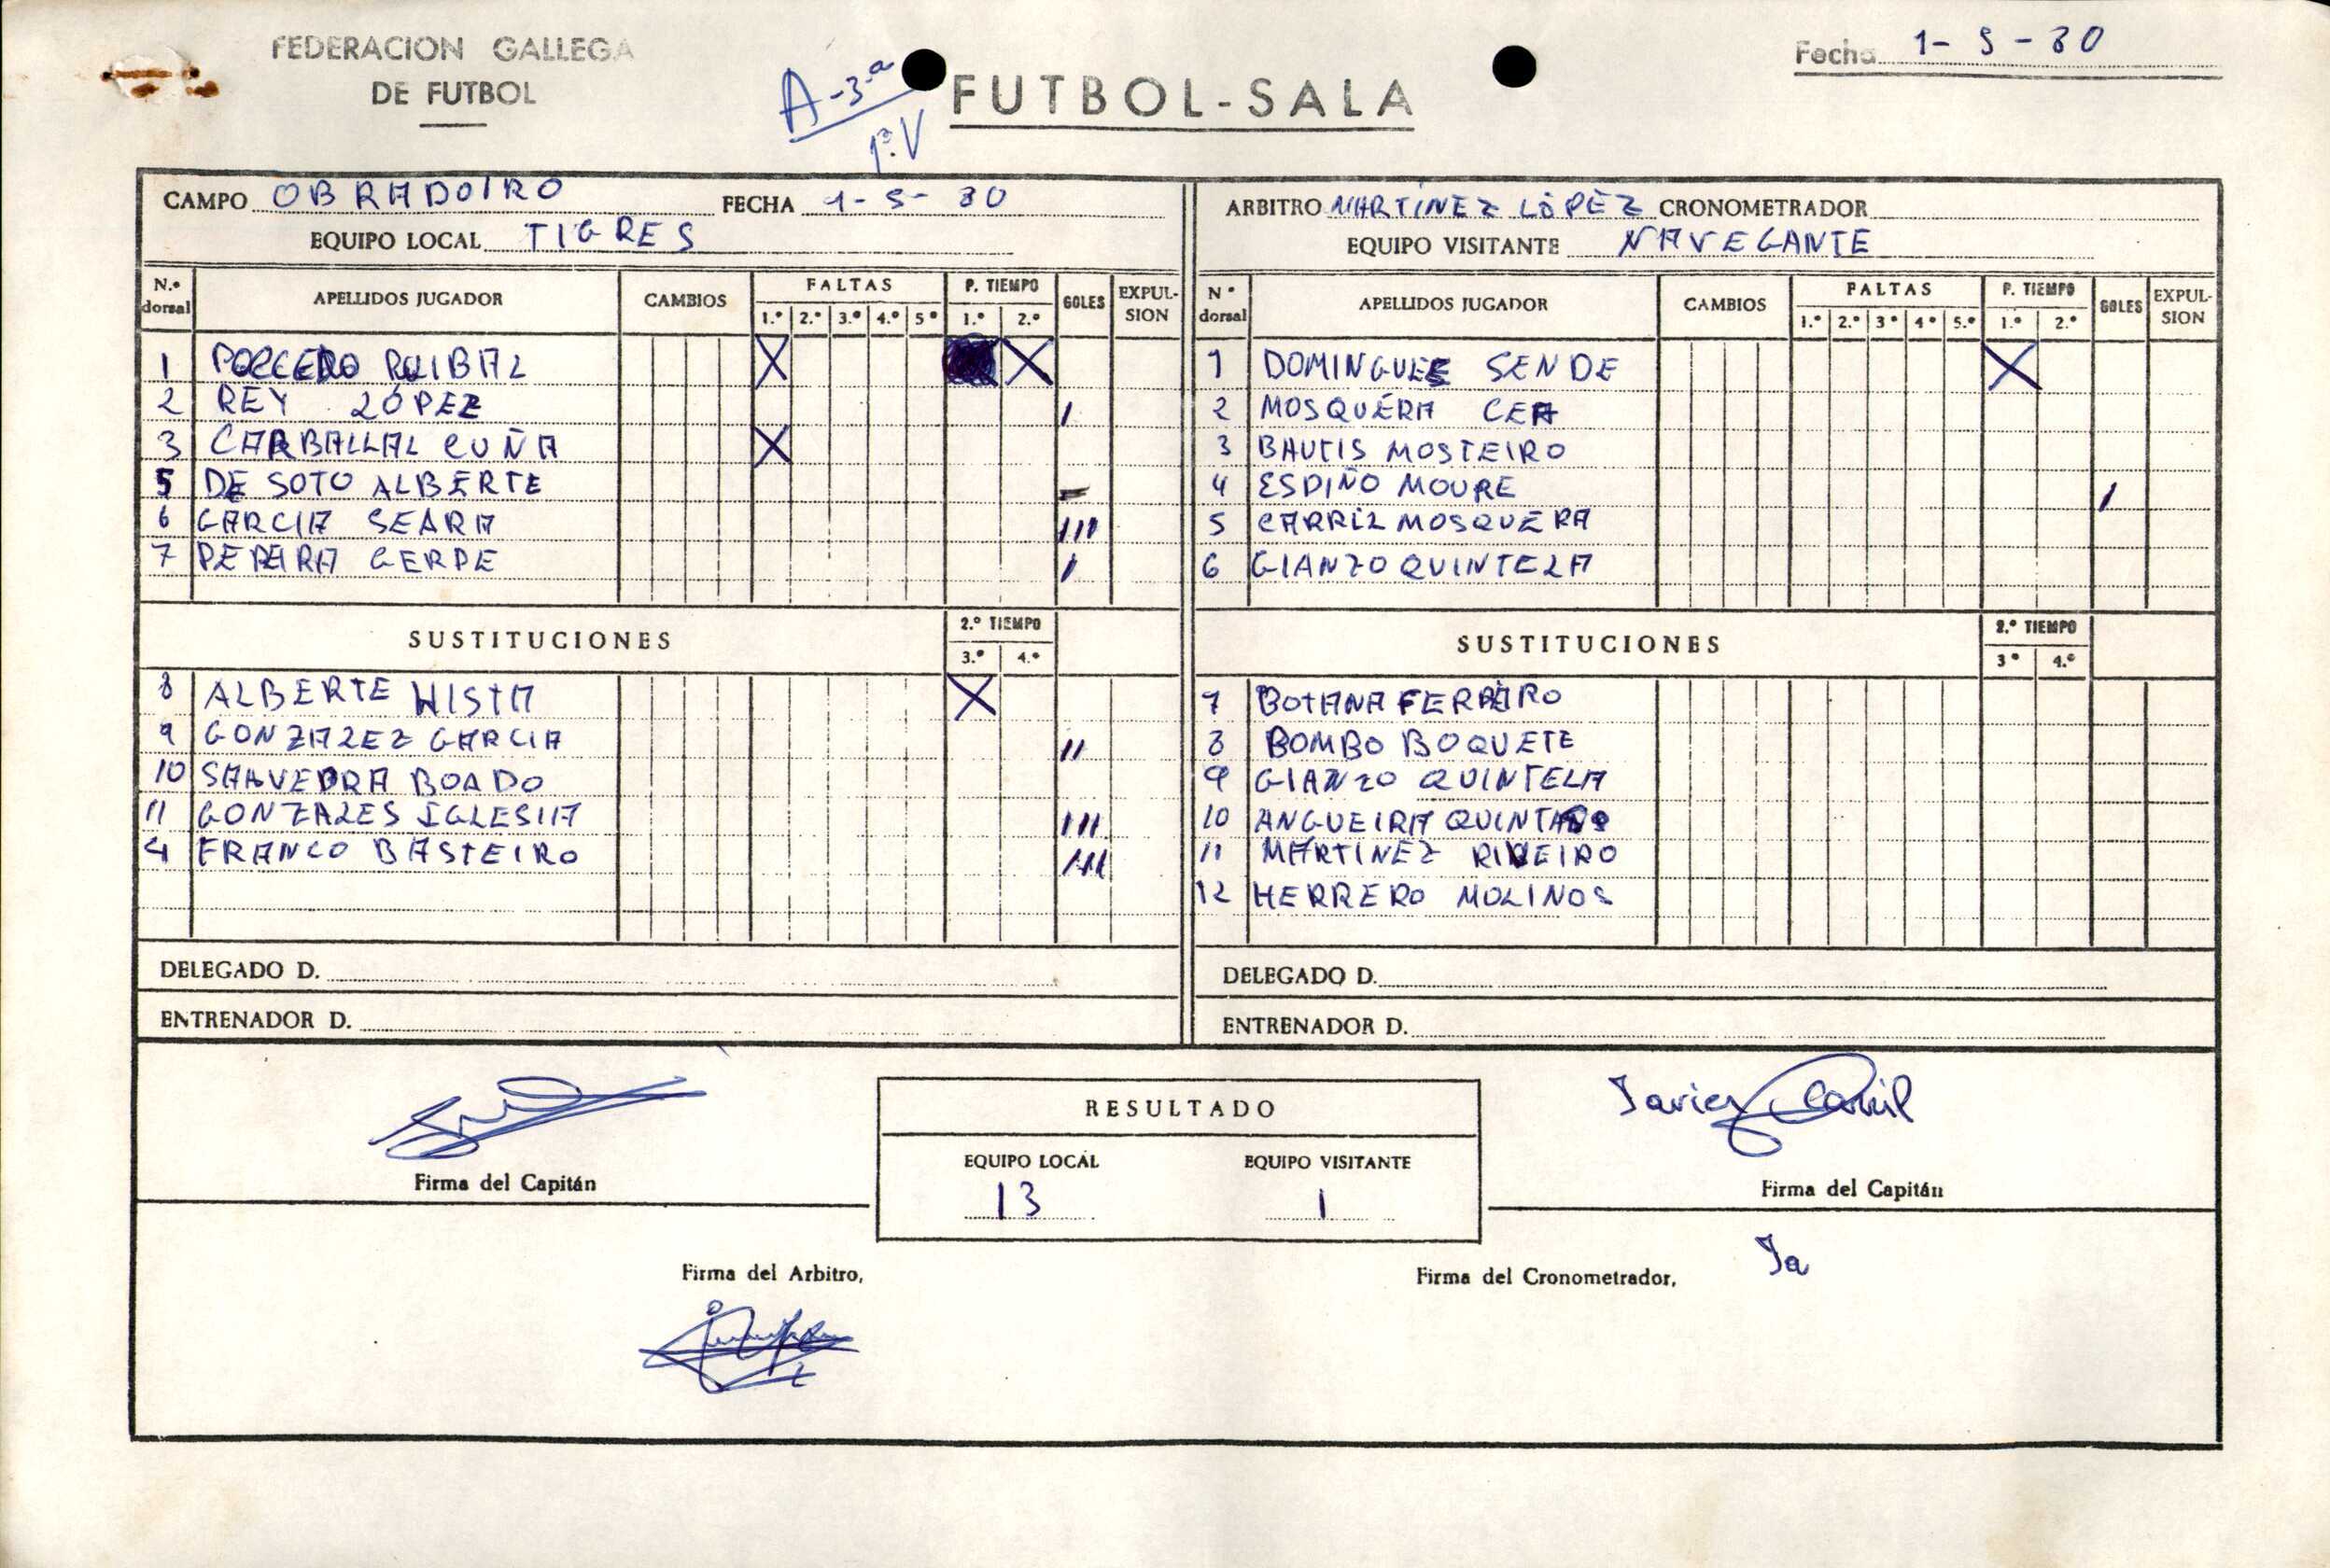 FEDERACION GALLEGA
DE FUTBOL
A-3-ª
P.V
FUTBOL-SALA
Fecha 1-5-80
CAMPO OBRADOIRO FECHA 1-5-80
EQUIPO LOCAL TIGRES
ARBITRO MARTINEZ LÓPEZ CRONOMETRADOR
EQUIPO VISITANTE NAVEGANTE
N.º dorsal APELLIDOS JUGADOR CAMBIOS FALTAS 1.º 2.º 3.º 4.º 5º P. TIEMPO 1.º 2.º GOLES EXPULSION
1 PORCEDO RUIBAL X X
2 REY LÓPEZ I
3 CARBALLAL CUÑA X
5 DE SOTO ALBERTE
6 GARCIA SEARA III
7 PEREIRA GERPE I
SUSTITUCIONES 2.º TIEMPO 3.º 4.º
8 ALBERTE X
9 GONZALEZ GARCIA II
10 SAAVEDRA BOADO
11 GONZALES IGLESIA III
4 FRANCO BASTEIRO III
DELEGADO D.
ENTRENADOR D.
Nº dorsal APELLIDOS JUGADOR CAMBIOS FALTAS 1.º 2.º 3º 4º 5.º P. TIEMPO 1.º 2.º GOLES EXPULSION
1 DOMINGUES SENDE X
2 MOSQUERA CEA
3 BAUTIS MOSTEIRO
4 ESPIÑO MOURE I
5 CARRIL MOSQUERA
6 GIANZO QUINTELA
SUSTITUCIONES 2.º TIEMPO 3º 4.º
7 BOTANA FERREIRO
8 BOMBO BOQUETE
9 GIANZO QUINTELA
10 ANGUEIRA
11 MARTINEZ RIVEIRO
12 HERRERO MOLINOS
DELEGADO D.
ENTRENADOR D.
Javier Carril
Firma del Capitán
RESULTADO
EQUIPO LOCAL EQUIPO VISITANTE
13 1
Firma del Capitán
Firma del Arbitro,
Firma del Cronometrador, Ja